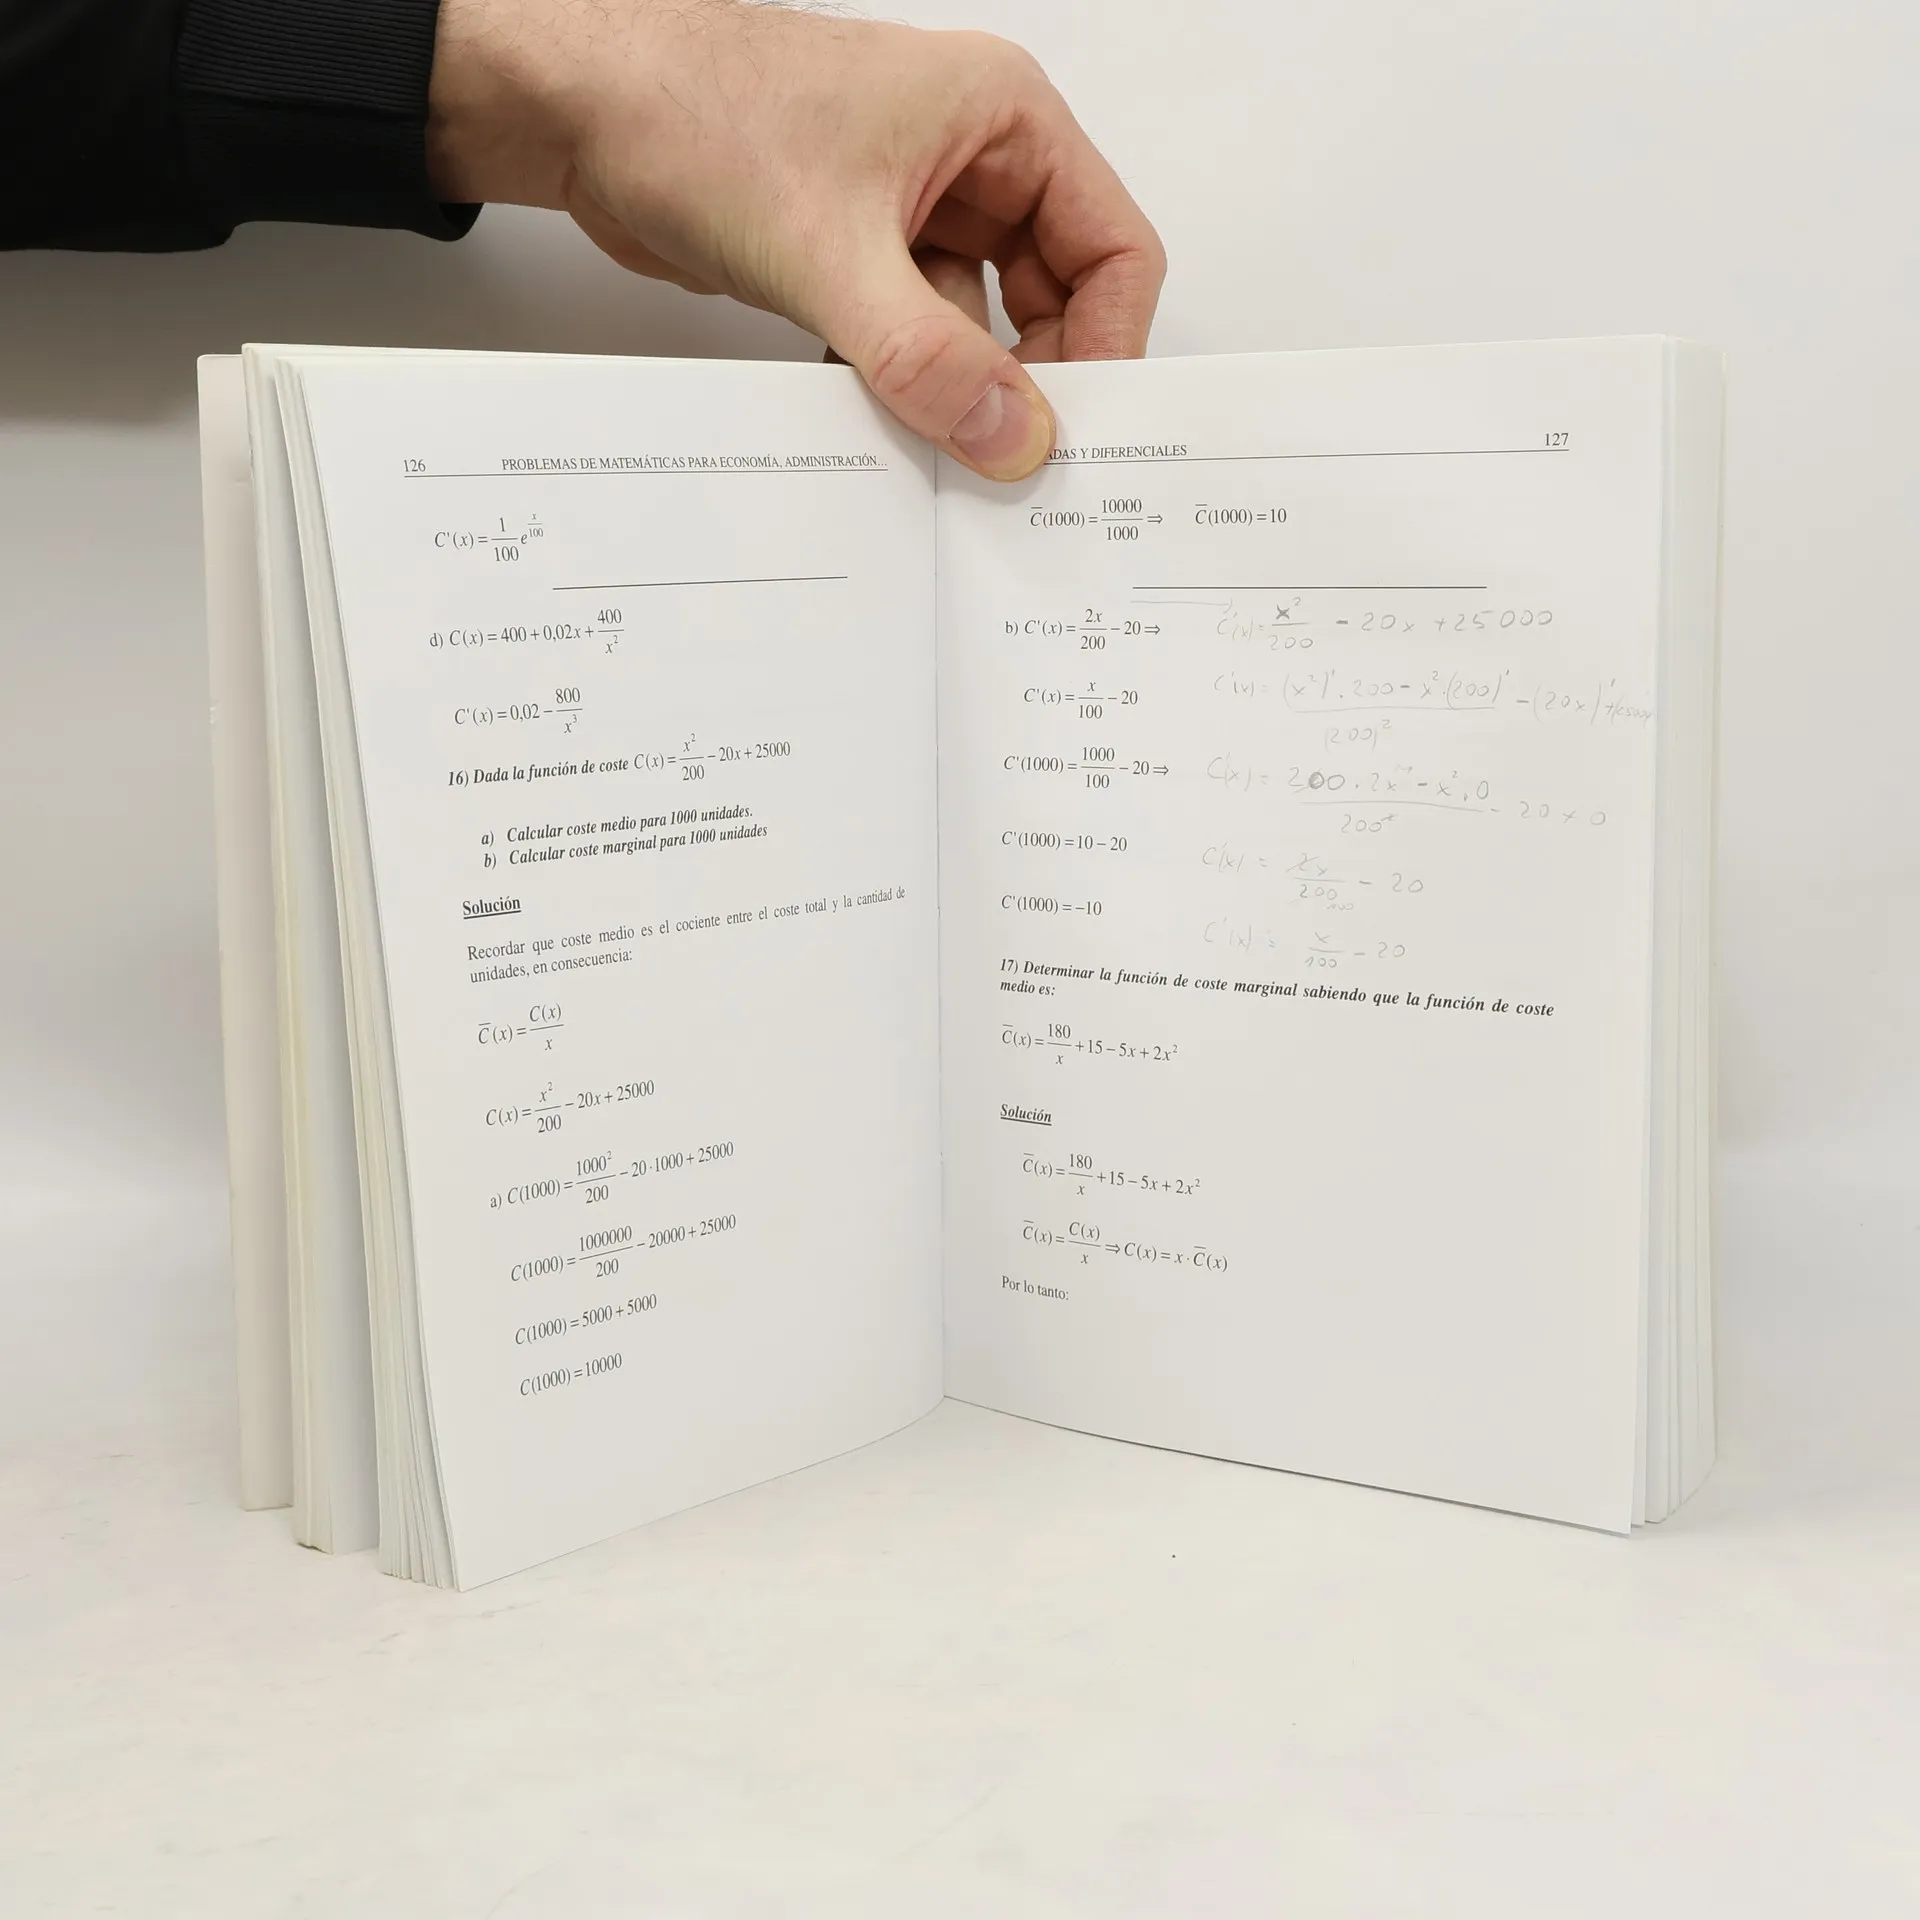 126 PROBLEMAS DE MATEMÁTICAS PARA ECONOMÍA, ADMINISTRACIÓN...
C'(x) = 1/100 e^(x/100)
d) C(x) = 400 + 0,02x + 400/x²
C'(x) = 0,02 − 800/x³
16) Dada la función de coste C(x) = x²/200 − 20x + 25000
a) Calcular coste medio para 1000 unidades.
b) Calcular coste marginal para 1000 unidades
Solución
Recordar que coste medio es el cociente entre el coste total y la cantidad de
unidades, en consecuencia:
C̅(x) = C(x)/x
C(x) = x²/200 − 20x + 25000
a) C(1000) = 1000²/200 − 20·1000 + 25000
C(1000) = 1000000/200 − 20000 + 25000
C(1000) = 5000 + 5000
C(1000) = 10000
ADAS Y DIFERENCIALES 127
C̅(1000) = 10000/1000 ⇒ C̅(1000) = 10
b) C'(x) = 2x/200 − 20 ⇒ C'(x) = x²/200 − 20x + 25000
C'(x) = x/100 − 20 C'(x) = ((x²)'.200 − x².(200)')/(200)² − (20x)' +
C'(1000) = 1000/100 − 20 ⇒ C'(x) = (200.2x − x².0)/200² − 20 + 0
C'(1000) = 10 − 20 C'(x) = 2x/200 − 20
C'(1000) = −10 C'(x) = x/100 − 20
17) Determinar la función de coste marginal sabiendo que la función de coste
medio es:
C̅(x) = 180/x + 15 − 5x + 2x²
Solución
C̅(x) = 180/x + 15 − 5x + 2x²
C̅(x) = C(x)/x ⇒ C(x) = x·C̅(x)
Por lo tanto: